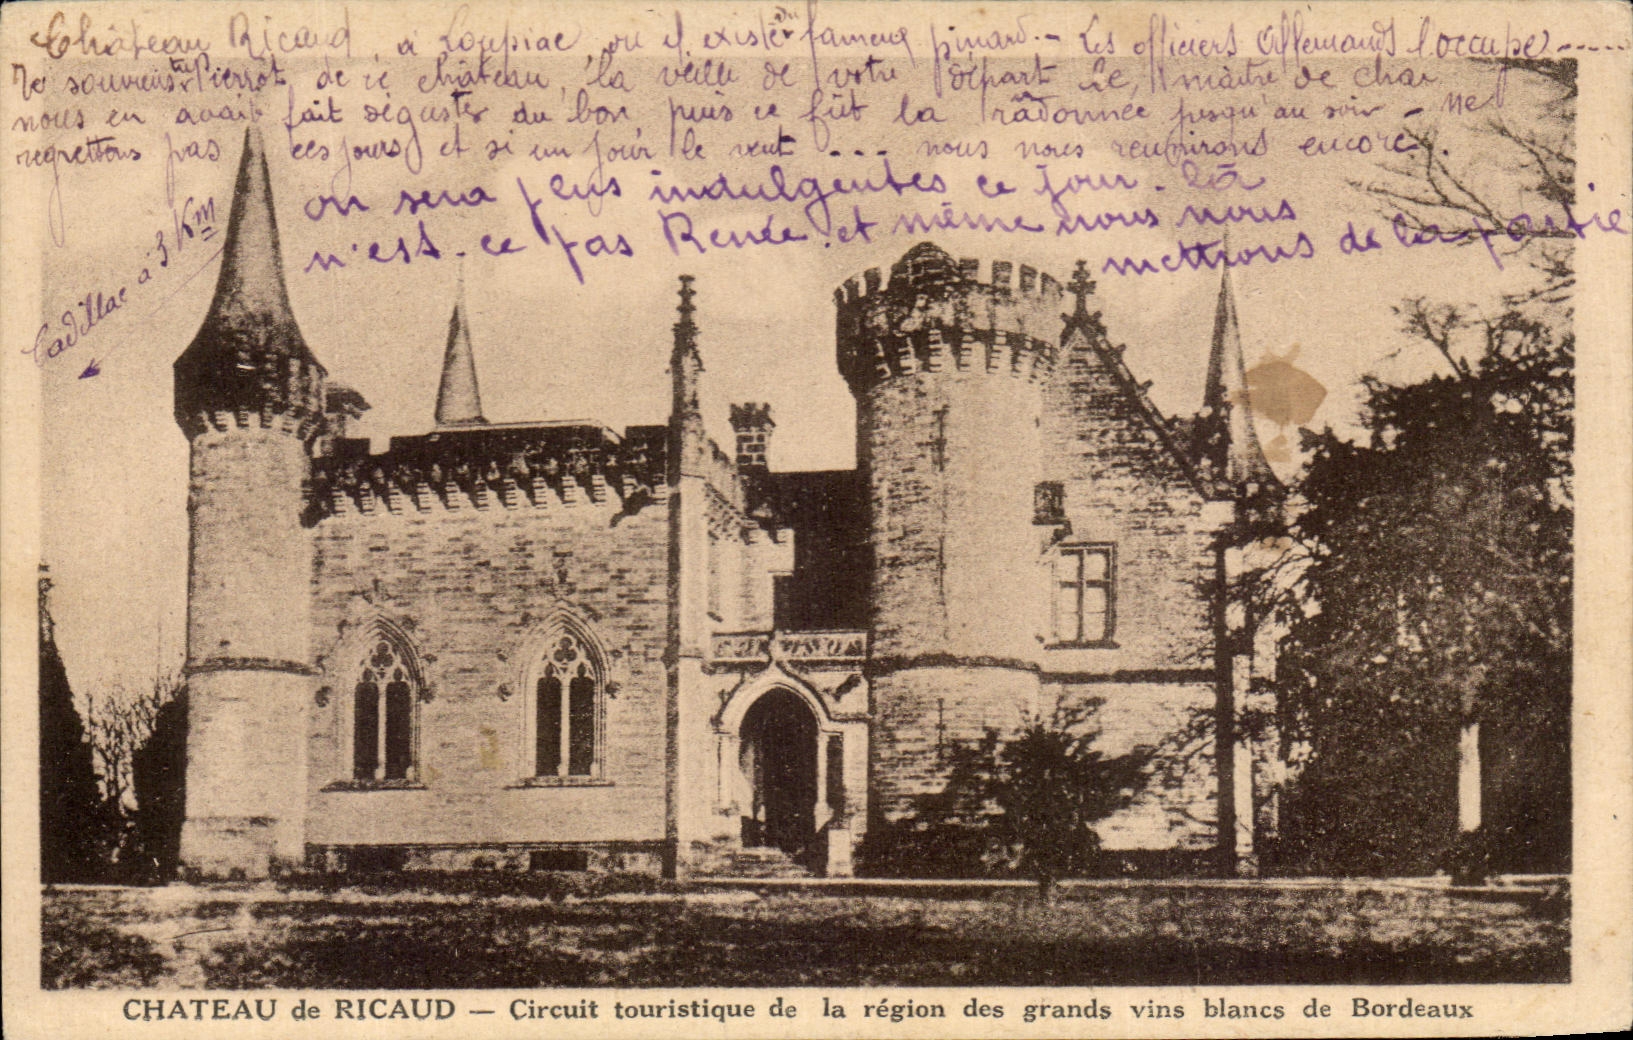 Château Ricaud, à Loupiac, où il existe du fameux pinard. - Les officiers Allemands l'occupe -----
Te souviens tu Pierrot de ce château, la veille de votre départ Le maître de chai
nous en avait fait déguster du bon puis ce fût la râdonnée jusqu'au soir - Ne
regrettons pas ces jours et si un jour le veut --- nous nous reunirons encore.
on sera plus indulgentes ce jour. là
n'est-ce pas Renée. et même nous nous
mettrons de la partie
Cadillac à 3 Km
CHATEAU de RICAUD — Circuit touristique de la région des grands vins blancs de Bordeaux